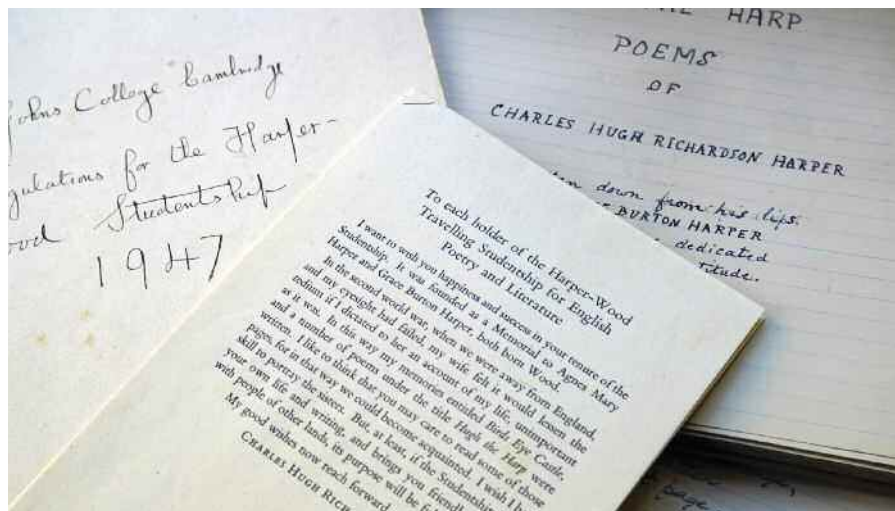 Johns College Cambridge
gulations for the Harper-
ood Studentship
1947
HARP
POEMS
OF
CHARLES HUGH RICHARDSON HARPER
down from his lips.
BURTON HARPER
dedicated
titude.
To each holder of the Harper-Wood
Travelling Studentship for English
Poetry and Literature
I want to wish you happiness and success in your tenure of the
Studentship. It was founded as a Memorial to Agnes Mary
Harper and Grace Burton Harper, both born Wood.
In the second world war, when we were away from England,
and my eyesight had failed, my wife felt it would lessen the
tedium if I dictated to her an account of my life, unimportant
as it was. In this way my memories entitled Bird's Eye Castle,
and a number of poems under the title Hugh the Harp were
written. I like to think that you may care to read some of those
pages, for in that way we could become acquainted. I wish I
skill to portray the sisters. But, at least, if the Studentship
your own life and writing, and brings you friendly
with people of other lands, its purpose will be
My good wishes now reach forward
CHARLES HUGH RICH
page